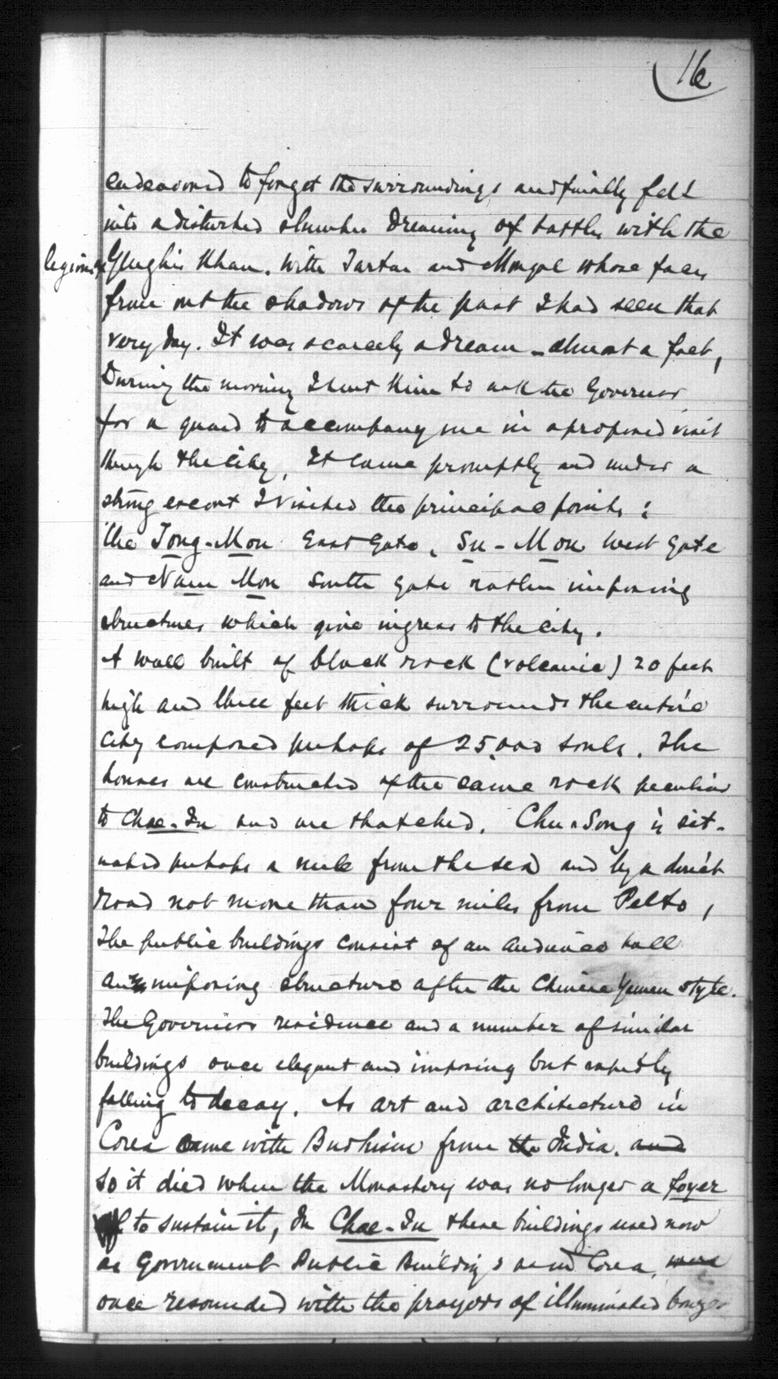 16
endeavored to forget the surroundings and finally fell
into a disturbed slumber dreaming of battles with the
legions of Ghenghis Khan. With Tartar and Mongol whose faces
from out the shadows of the past I had seen that
very day. It was scarcely a dream - almost a fact,
During the morning I sent Kim to ask the Governor
for a guard to accompany me in a proposed visit
through the city, It came promptly and under a
strong escort I visited the principal points:
The Tong-Mon East Gate, Su-Mon West Gate
and Nam Mon South gate rather imposing
structures which give ingress to the city.
A wall built of black rock (volcanic) 20 feet
high and three feet thick surrounds the entire
city composed perhaps of 25,000 souls. The
houses are constructed of the same rock peculiar
to Chae-Ju and are thatched. Chu-Song is sit-
uated perhaps a mile from the sea and by a direct
road not more than four miles from Pelto,
The public buildings consist of an audience hall
an imposing structure after the Chinese Yamen style.
The Governors residence and a number of similar
buildings once elegant and imposing but rapidly
falling to decay. As art and architecture in
Corea came with Budhism from the India. and
so it died when the Monastery was no longer a foyer
to sustain it, In Chae-Ju these buildings used now
as Government Public Buildings as in Corea, were
once resounded with the prayers of illuminated bonzes